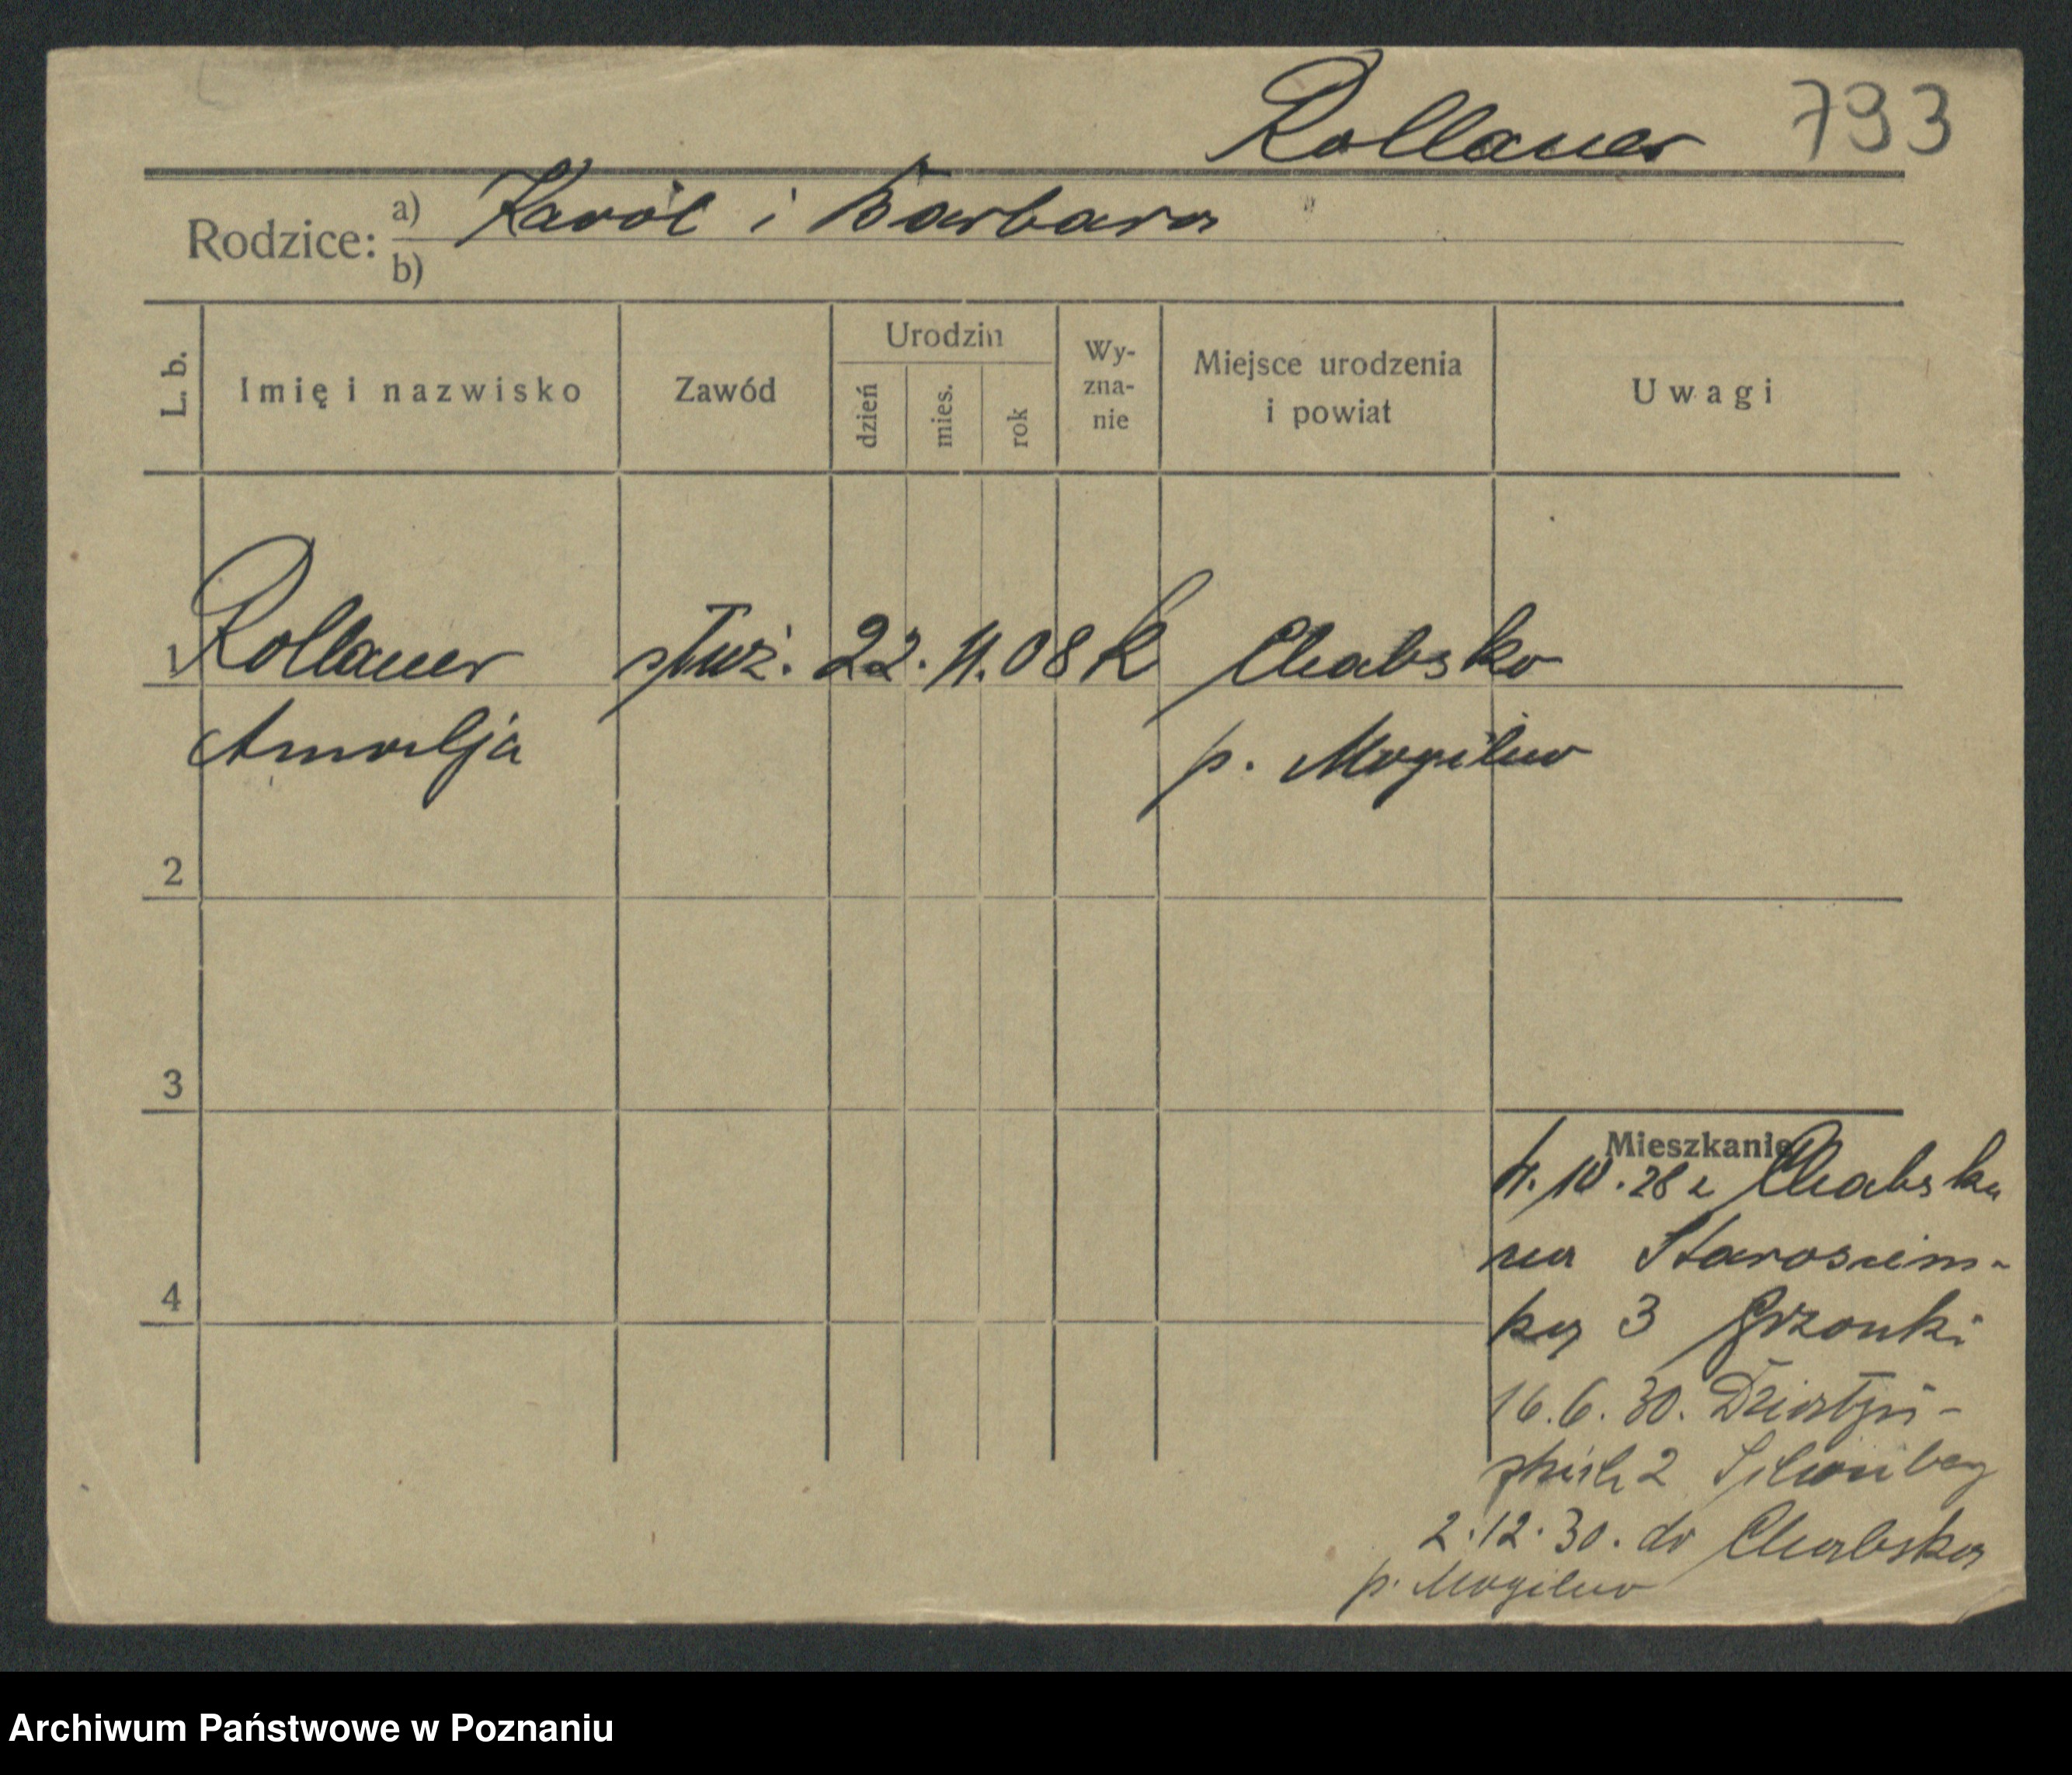 Rollauer 793
Rodzice: a) Karól i Barbara
b)
L. b. Imię i nazwisko Zawód Urodzin dzień mies. rok Wy-zna-nie Miejsce urodzenia i powiat Uwagi
1 Rollauer służ. 22. 11. 08 k Chabsko
Amalja p. Mogilno
2
3
Mieszkanie
10. 28 z Chabska
na
3
4
16. 6. 30.
2
2. 12. 30. do Chabska
p. Mogilno
Archiwum Państwowe w Poznaniu